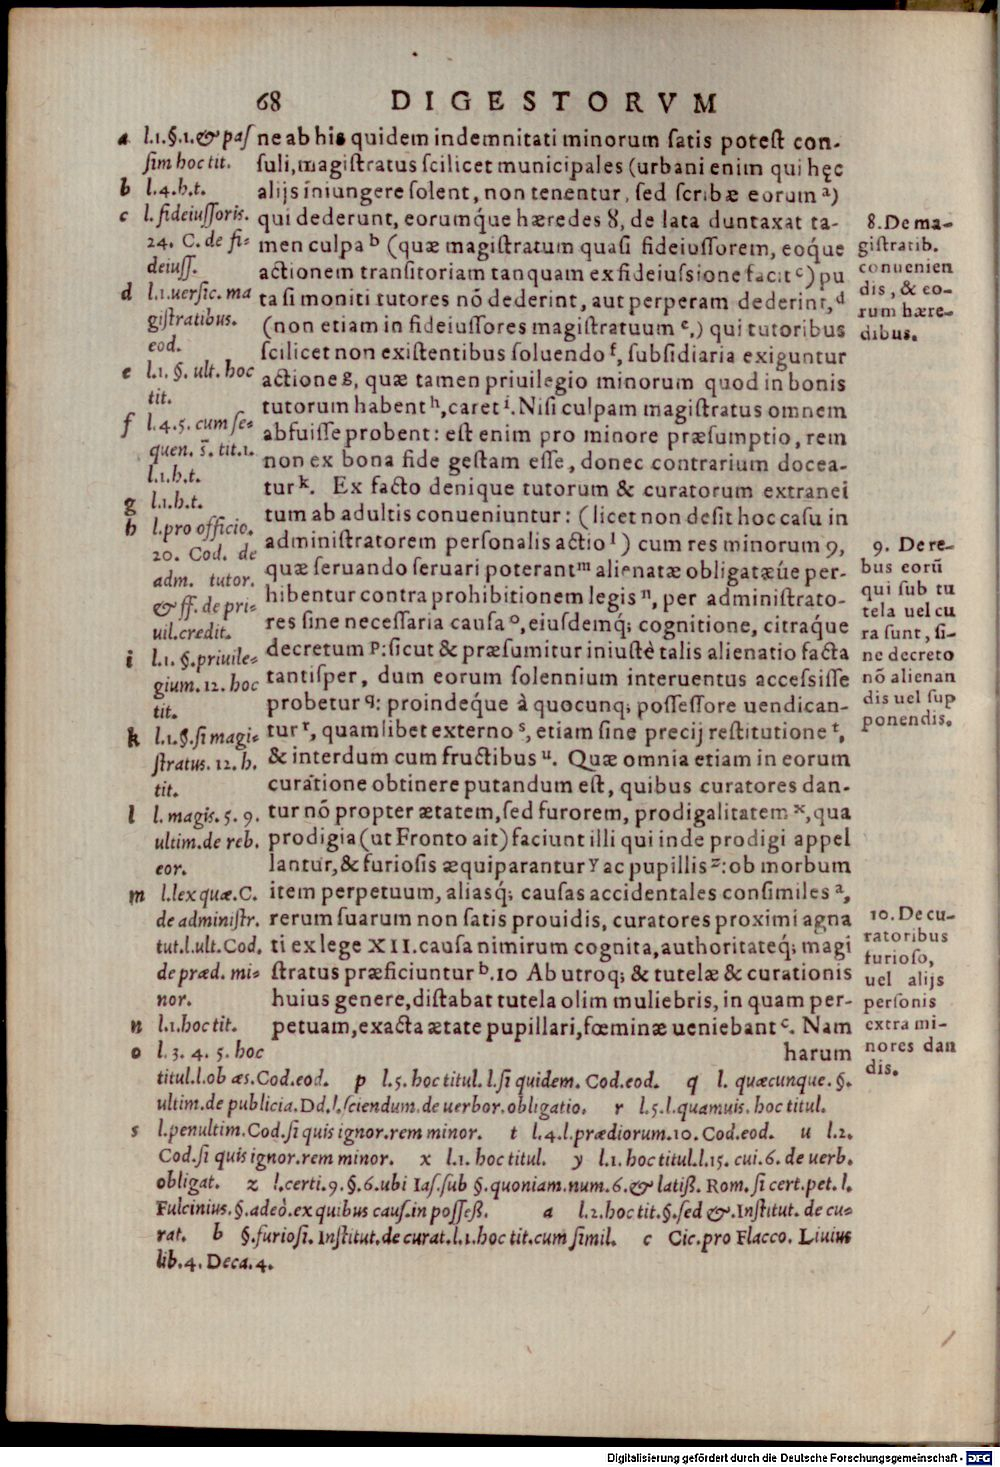 68 DIGESTORVM
ne ab his quidem indemnitati minorum satis potest con-
suli, magistratus scilicet municipales (urbani enim qui hęc
alijs iniungere solent, non tenentur, sed scribæ eorum a)
qui dederunt, eorumq́ue hæredes 8, de lata duntaxat ta-
men culpa b (quæ magistratum quasi fideiussorem, eoq́ue
actionem transitoriam tanquam ex fideiussione facit c) pu
ta si moniti tutores nō dederint, aut perperam dederint, d
(non etiam in fideiussores magistratuum e,) qui tutoribus
scilicet non existentibus soluendo f, subsidiaria exiguntur
actione g, quæ tamen priuilegio minorum quod in bonis
tutorum habent h, caret i. Nisi culpam magistratus omnem
abfuisse probent: est enim pro minore præsumptio, rem
non ex bona fide gestam esse, donec contrarium docea-
tur k. Ex facto denique tutorum & curatorum extranei
tum ab adultis conueniuntur: (licet non desit hoc casu in
administratorem personalis actio l) cum res minorum 9,
quæ seruando seruari poterant m alienatæ obligatæúe per-
hibentur contra prohibitionem legis n, per administrato-
res sine necessaria causa o, eiusdemq́; cognitione, citraq́ue
decretum p: sicut & præsumitur iniustè talis alienatio facta
tantisper, dum eorum solennium interuentus accessisse
probetur q: proindeq́ue à quocunq; possessore uendican-
tur r, quamlibet externo s, etiam sine precij restitutione t,
& interdum cum fructibus u. Quæ omnia etiam in eorum
curatione obtinere putandum est, quibus curatores dan-
tur nō propter ætatem, sed furorem, prodigalitatem x, qua
prodigia (ut Fronto ait) faciunt illi qui inde prodigi appel
lantur, & furiosis æquiparantur y ac pupillis z: ob morbum
item perpetuum, aliasq́; causas accidentales consimiles a,
rerum suarum non satis prouidis, curatores proximi agna
ti ex lege XII. causa nimirum cognita, authoritateq́; magi
stratus præficiuntur b. 10 Ab utroq; & tutelæ & curationis
huius genere, distabat tutela olim muliebris, in quam per-
petuam, exacta ætate pupillari, fœminæ ueniebant c. Nam
harum
a l.1.§.1.& pas
sim hoc tit.
b l.4.h.t.
c l. fideiussoris.
24. C. de fi-
deiuss.
d l.1.uersic. ma
gistratibus.
eod.
e l.1. §. ult. hoc
tit.
f l.4.5. cum se-
quen. s̄. tit.1.
l.1.h.t.
g l.1.h.t.
h l.pro officio.
20. Cod. de
adm. tutor.
& ff. de pri-
uil.credit.
i l.1. §.priuile-
gium.12. hoc
tit.
k l.1.§.si magi-
stratus.12.h.
tit.
l l. magis.5.9.
ultim.de reb.
eor.
m l.lex quæ.C.
de administr.
tut.l.ult.Cod.
de præd. mi-
nor.
n l.1.hoc tit.
o l.3.4.5. hoc
titul.l.ob æs.Cod.eod. p l.5. hoc titul.l.si quidem. Cod.eod. q l. quæcunque.§.
ultim.de publicia.Dd.l.sciendum.de uerbor.obligatio. r l.5.l.quamuis. hoc titul.
s l.penultim.Cod.si quis ignor.rem minor. t l.4.l.prædiorum.10.Cod.eod. u l.2.
Cod.si quis ignor.rem minor. x l.1. hoc titul. y l.1. hoc titul.l.15. cui.6. de uerb.
obligat. z l.certi.9.§.6.ubi Ias.sub §.quoniam.num.6.& latiß. Rom. si cert.pet. l.
Fulcinius.§.adeò.ex quibus caus.in posseß. a l.2.hoc tit.§.sed &.Institut. de cu-
rat. b §.furiosi.Institut.de curat.l.1.hoc tit.cum simil. c Cic.pro Flacco. Liuius
lib.4. Deca.4.
8. De ma-
gistratib.
conuenien
dis, & eo-
rum hære-
dibus.
9. De re-
bus eorū
qui sub tu
tela uel cu
ra sunt, si-
ne decreto
nō alienan
dis uel sup
ponendis.
10. De cu-
ratoribus
furioso,
uel alijs
personis
extra mi-
nores dan
dis.
Digitalisierung gefördert durch die Deutsche Forschungsgemeinschaft - DFG